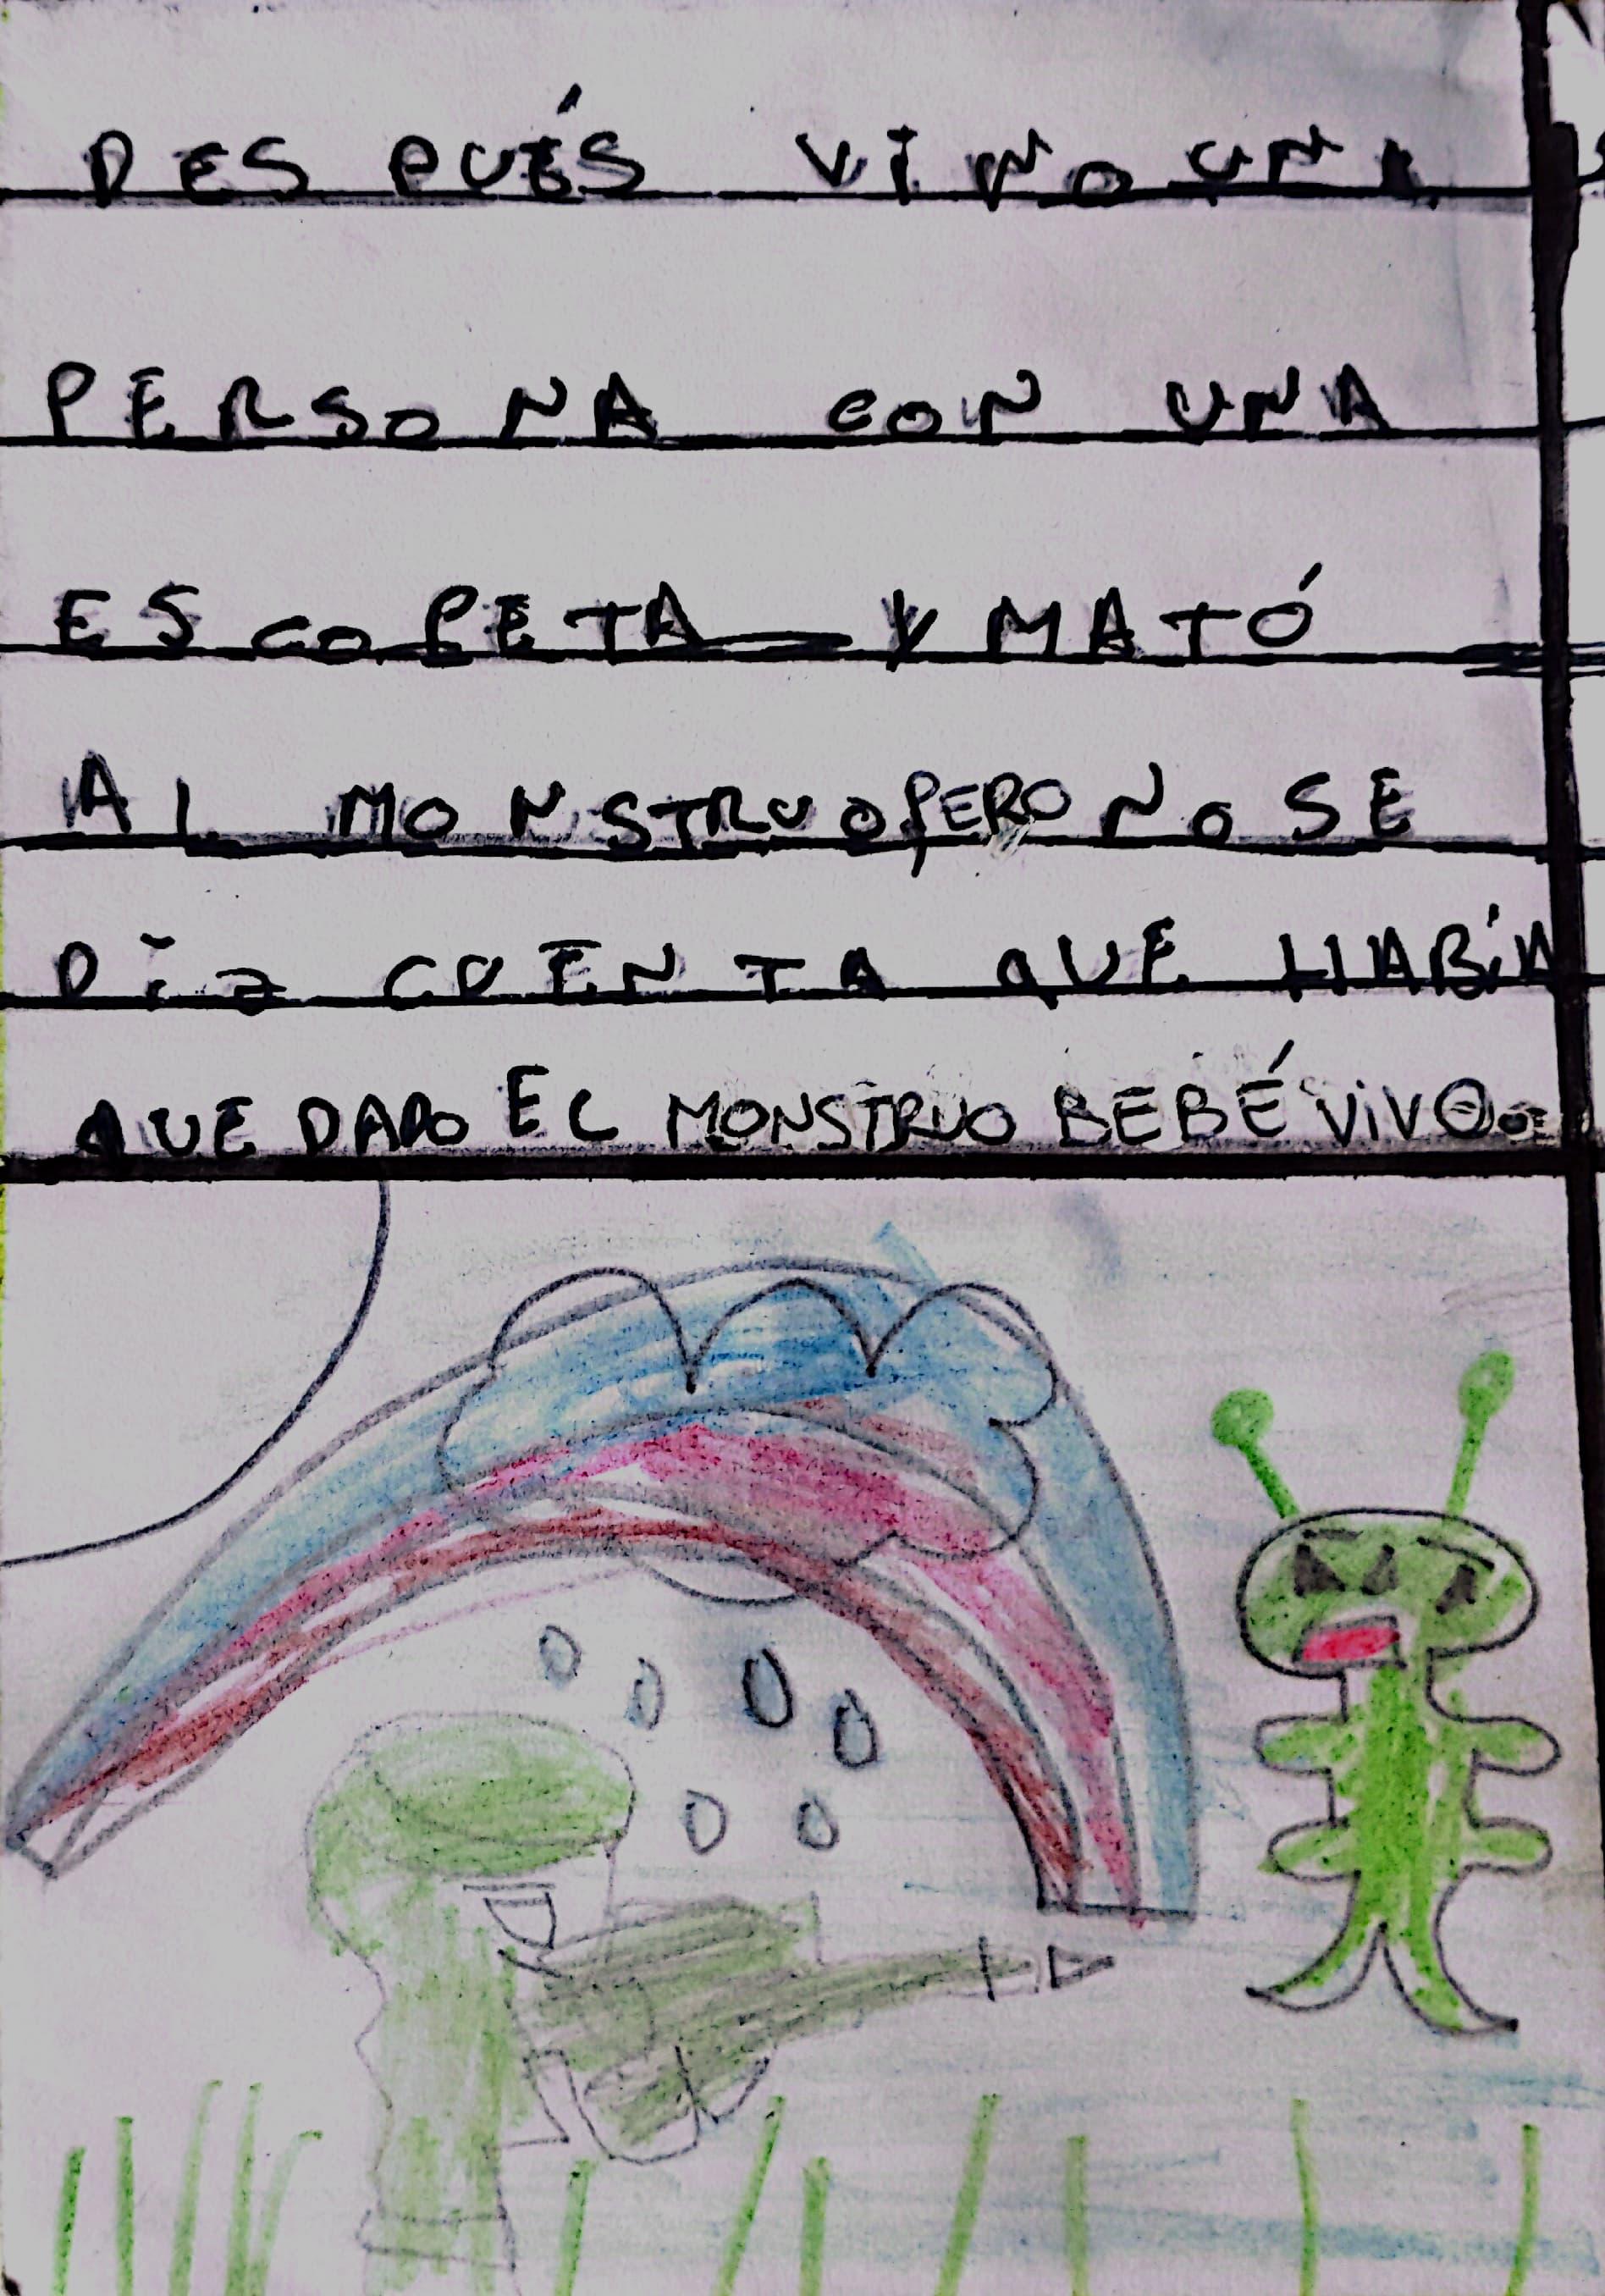 DESPUÉS VINO UNA
PERSONA CON UNA
ESCOPETA Y MATÓ
AL MONSTRUO, PERO NO SE
DIO CUENTA QUE HABÍA
QUEDADO EL MONSTRUO BEBÉ VIVO.